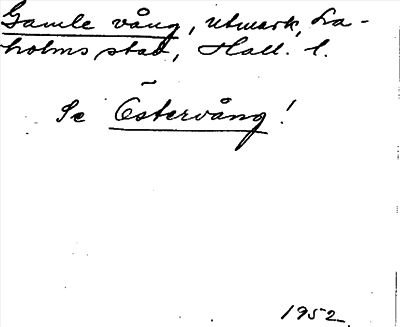 Gamle vång, utmark, La-
holms stad, Hall. l.
Se Östervång!
1952